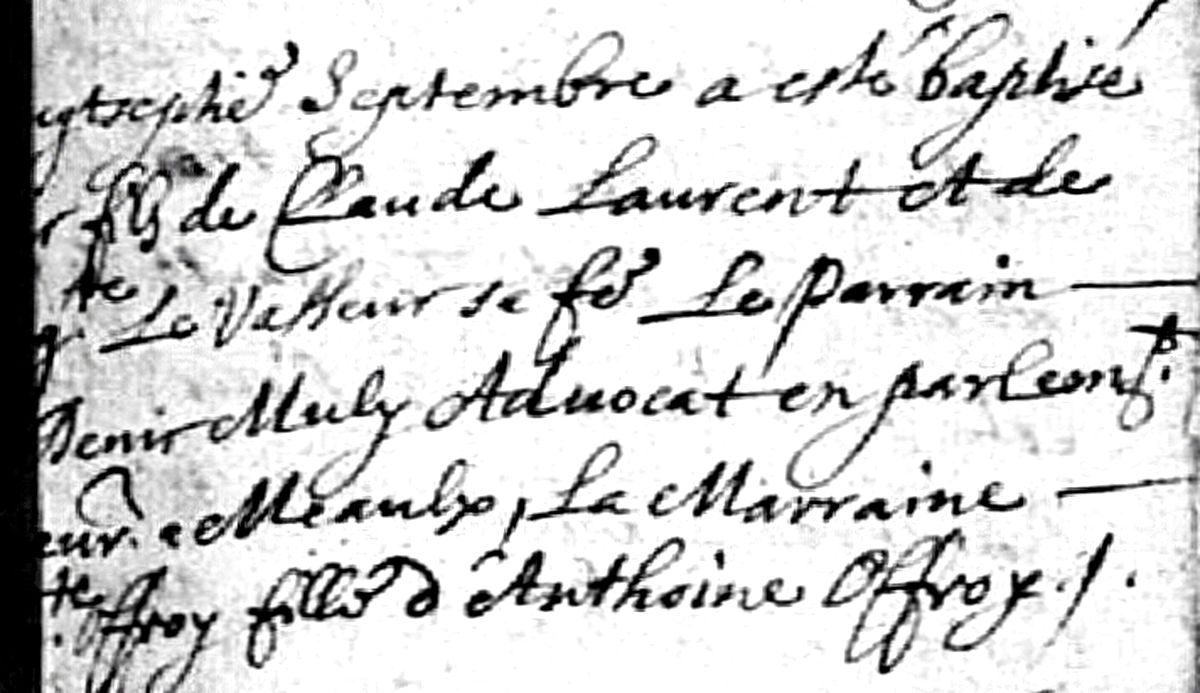 septie Septembre a esté baptisé
fils de Claude Laurent et de
te Le Vasseur sa fe Le Parrain
Denis Muly Advocat en parlemt.
eur. a Meaulx, La Marraine
te Offroy fille d'Anthoine Offroy ./.